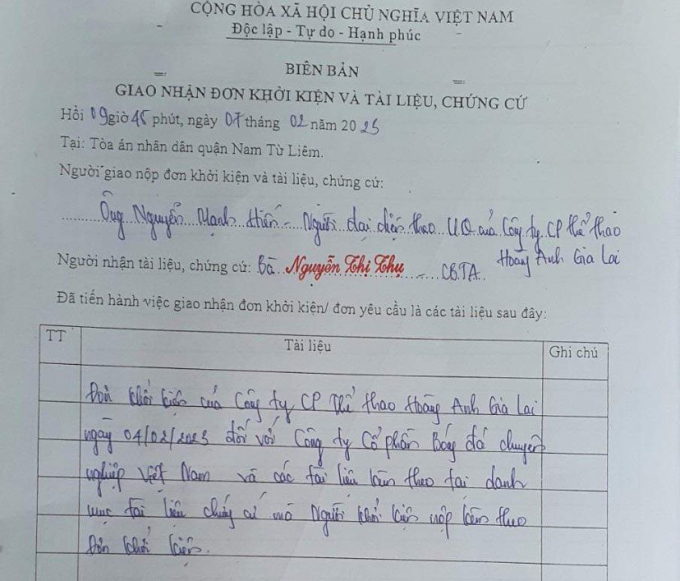 CỘNG HÒA XÃ HỘI CHỦ NGHĨA VIỆT NAM
Độc lập - Tự do - Hạnh phúc
BIÊN BẢN
GIAO NHẬN ĐƠN KHỞI KIỆN VÀ TÀI LIỆU, CHỨNG CỨ
Hồi 09 giờ 45 phút, ngày 07 tháng 02 năm 2023
Tại: Tòa án nhân dân quận Nam Từ Liêm.
Người giao nộp đơn khởi kiện và tài liệu, chứng cứ:
Ông Nguyễn Mạnh Hiến - Người đại diện theo UQ của Công ty CP thể thao
Hoàng Anh Gia Lai
Người nhận tài liệu, chứng cứ: Bà Nguyễn Thị Thu - CBTA.
Đã tiến hành việc giao nhận đơn khởi kiện/ đơn yêu cầu là các tài liệu sau đây:
TT Tài liệu Ghi chú
Đơn khởi kiện của Công ty CP Thể thao Hoàng Anh Gia Lai
ngày 04/02/2023 đối với Công ty Cổ phần Bóng đá chuyên
nghiệp Việt Nam và các tài liệu kèm theo tại danh
mục tài liệu chứng cứ mà Người khởi kiện nộp kèm theo
Đơn khởi kiện.